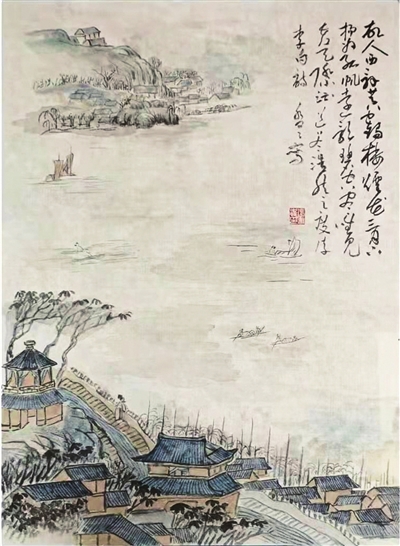 故人西辞黄鹤楼烟花三月下
扬州孤帆远影碧空尽唯见
长江天际流孟浩然之广陵
李白诗